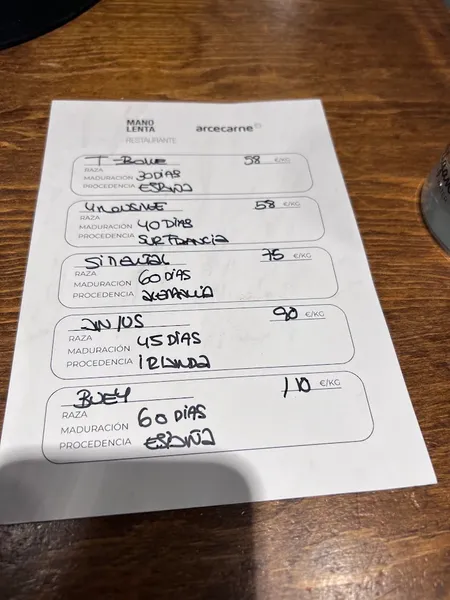 MANO
LENTA
RESTAURANTE
arcecarne
T-BONE 58 €/KG
RAZA
MADURACIÓN 30 DÍAS
PROCEDENCIA ESPAÑA
58 €/KG
RAZA
MADURACIÓN 40 DÍAS
PROCEDENCIA SUR FRANCIA
75 €/KG
RAZA
MADURACIÓN 60 DÍAS
PROCEDENCIA ALEMANIA
90 €/KG
RAZA
MADURACIÓN 45 DÍAS
PROCEDENCIA IRLANDA
BUEY 110 €/KG
RAZA
MADURACIÓN 60 DÍAS
PROCEDENCIA ESPAÑA